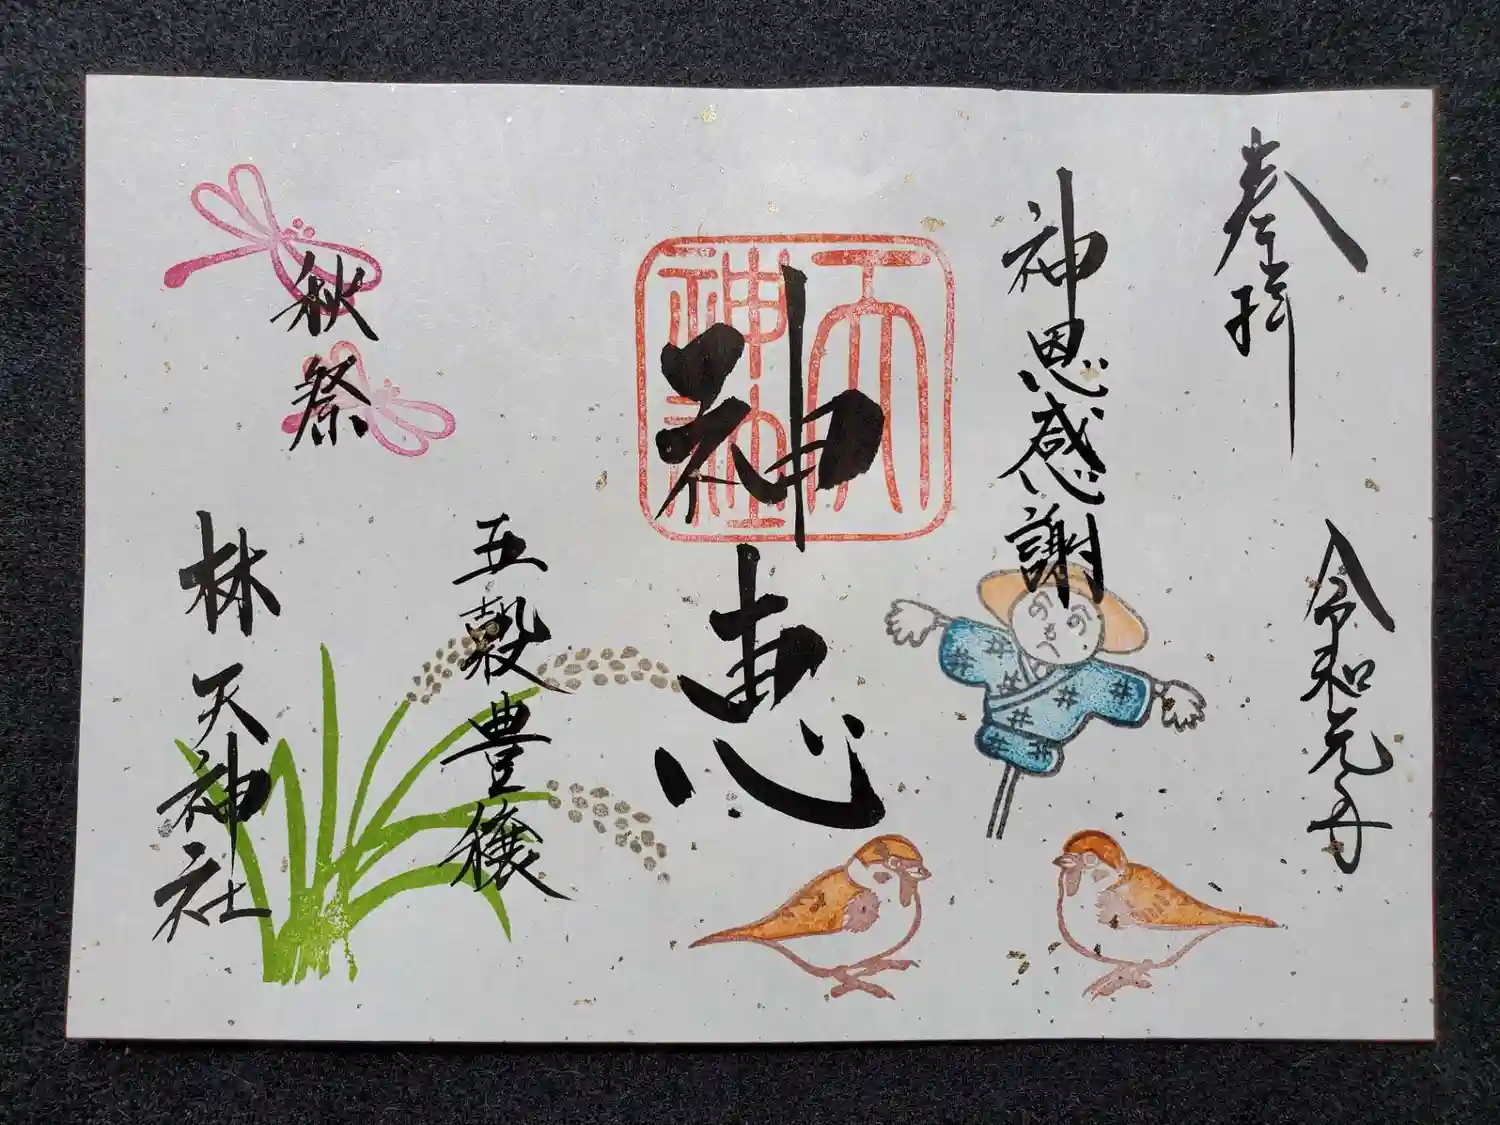 奉拝
令和元年
神恩感謝
天神社
神恵
五穀豊穣
秋祭
林天神社